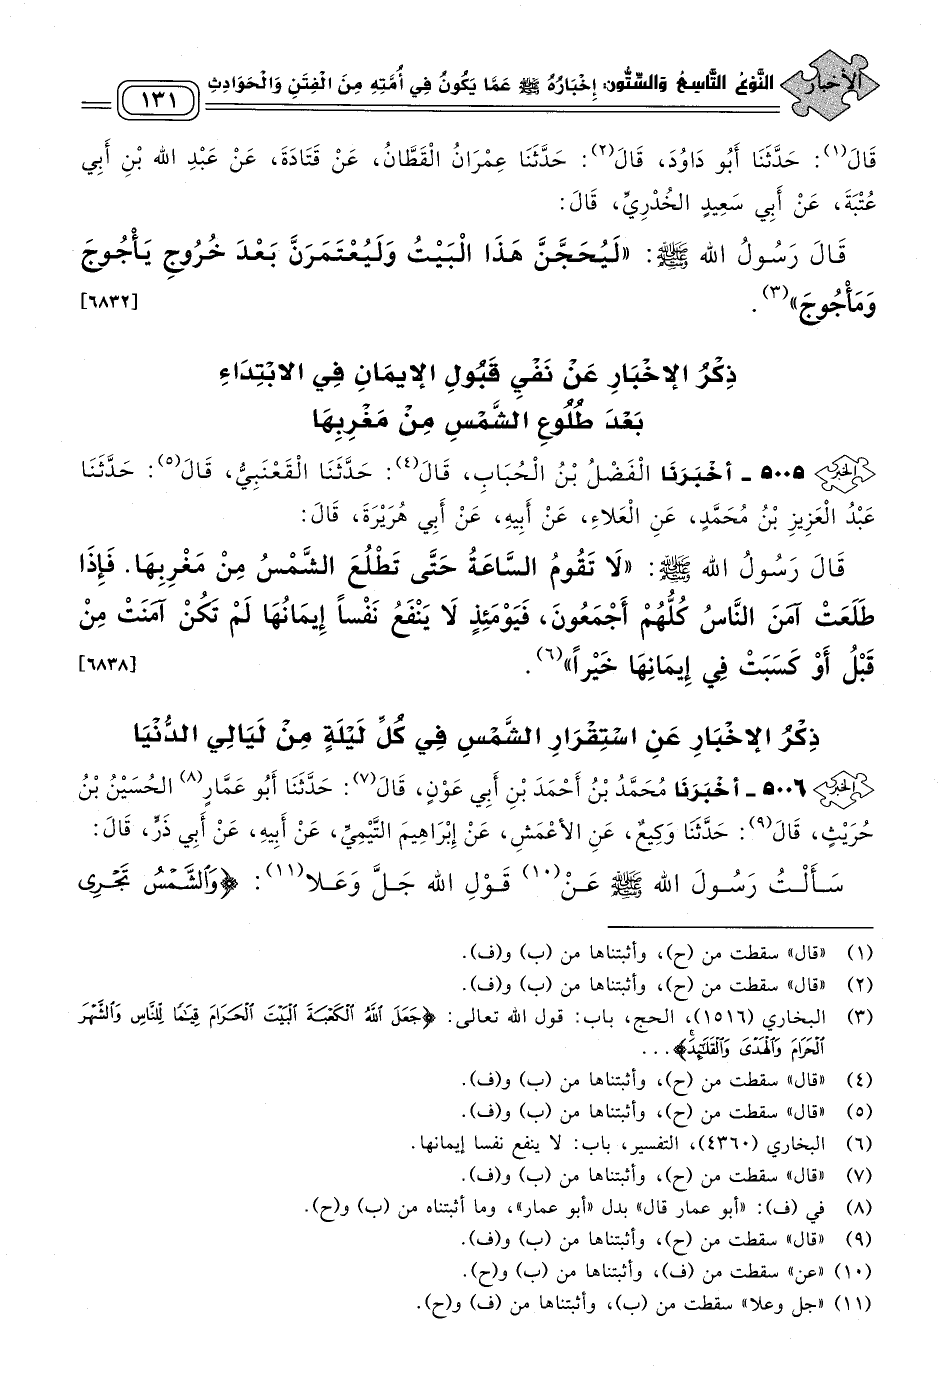 الأخبار
النَّوْعُ التَّاسِعُ وَالسِّتُّونَ: إِخْبَارُهُ ﷺ عَمَّا يَكُونُ فِي أُمَّتِهِ مِنَ الْفِتَنِ وَالْحَوَادِثِ
١٣١
قَالَ(١): حَدَّثَنَا أَبُو دَاوُدَ، قَالَ(٢): حَدَّثَنَا عِمْرَانُ الْقَطَّانُ، عَنْ قَتَادَةَ، عَنْ عَبْدِ الله بْنِ أَبِي
عُتْبَةَ، عَنْ أَبِي سَعِيدٍ الخُدْرِيِّ، قَالَ:
قَالَ رَسُولُ الله ﷺ: «لَيُحَجَّنَّ هَذَا الْبَيْتُ وَلَيُعْتَمَرَنَّ بَعْدَ خُرُوجِ يَأْجُوجَ
وَمَأْجُوجَ»(٣). [٦٨٣٢]
ذِكْرُ الإِخْبَارِ عَنْ نَفْيِ قَبُولِ الإِيمَانِ فِي الابْتِدَاءِ
بَعْدَ طُلُوعِ الشَّمْسِ مِنْ مَغْرِبِهَا
٥٠٠٥ - أَخْبَرَنَا الْفَضْلُ بْنُ الْحُبَابِ، قَالَ(٤): حَدَّثَنَا الْقَعْنَبِيُّ، قَالَ(٥): حَدَّثَنَا
عَبْدُ الْعَزِيزِ بْنُ مُحَمَّدٍ، عَنِ الْعَلَاءِ، عَنْ أَبِيهِ، عَنْ أَبِي هُرَيْرَةَ، قَالَ:
قَالَ رَسُولُ الله ﷺ: «لَا تَقُومُ السَّاعَةُ حَتَّى تَطْلُعَ الشَّمْسُ مِنْ مَغْرِبِهَا. فَإِذَا
طَلَعَتْ آمَنَ النَّاسُ كُلُّهُمْ أَجْمَعُونَ، فَيَوْمَئِذٍ لَا يَنْفَعُ نَفْساً إِيمَانُهَا لَمْ تَكُنْ آمَنَتْ مِنْ
قَبْلُ أَوْ كَسَبَتْ فِي إِيمَانِهَا خَيْراً»(٦). [٦٨٣٨]
ذِكْرُ الإِخْبَارِ عَنِ اسْتِقْرَارِ الشَّمْسِ فِي كُلِّ لَيْلَةٍ مِنْ لَيَالِي الدُّنْيَا
٥٠٠٦ - أَخْبَرَنَا مُحَمَّدُ بْنُ أَحْمَدَ بْنِ أَبِي عَوْنٍ، قَالَ(٧): حَدَّثَنَا أَبُو عَمَّارٍ(٨) الحُسَيْنُ بْنُ
حُرَيْثٍ، قَالَ(٩): حَدَّثَنَا وَكِيعٌ، عَنِ الأَعْمَشِ، عَنْ إِبْرَاهِيمَ التَّيْمِيِّ، عَنْ أَبِيهِ، عَنْ أَبِي ذَرٍّ، قَالَ:
سَأَلْتُ رَسُولَ الله ﷺ عَنْ(١٠) قَوْلِ الله جَلَّ وَعَلَا(١١): ﴿وَالشَّمْسُ تَجْرِى
(١) «قال» سقطت من (ح)، وأثبتناها من (ب) و(ف).
(٢) «قال» سقطت من (ح)، وأثبتناها من (ب) و(ف).
(٣) البخاري (١٥١٦)، الحج، باب: قول الله تعالى: ﴿جَعَلَ اللَّهُ الْكَعْبَةَ الْبَيْتَ الْحَرَامَ قِيَامًا لِلنَّاسِ وَالشَّهْرَ
الْحَرَامَ وَالْهَدْيَ وَالْقَلَائِدَ﴾...
(٤) «قال» سقطت من (ح)، وأثبتناها من (ب) و(ف).
(٥) «قال» سقطت من (ح)، وأثبتناها من (ب) و(ف).
(٦) البخاري (٤٣٦٠)، التفسير، باب: لا ينفع نفسا إيمانها.
(٧) «قال» سقطت من (ح)، وأثبتناها من (ب) و(ف).
(٨) في (ف): «أبو عمار قال» بدل «أبو عمار»، وما أثبتناه من (ب) و(ح).
(٩) «قال» سقطت من (ح)، وأثبتناها من (ب) و(ف).
(١٠) «عن» سقطت من (ف)، وأثبتناها من (ب) و(ح).
(١١) «جل وعلا» سقطت من (ب)، وأثبتناها من (ف) و(ح).